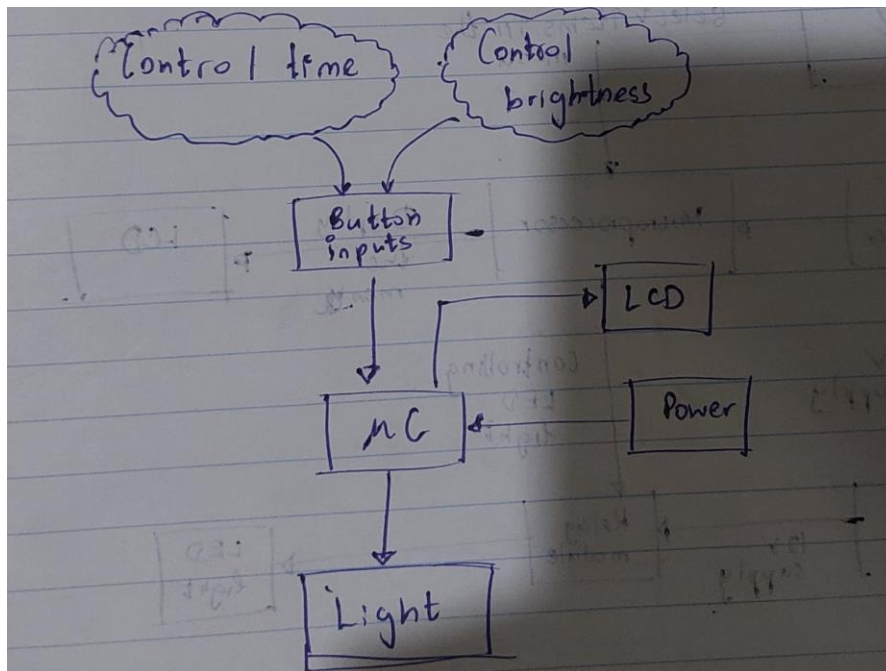 Control time
Control
brightness
Button
inputs
LCD
μC
Power
Light